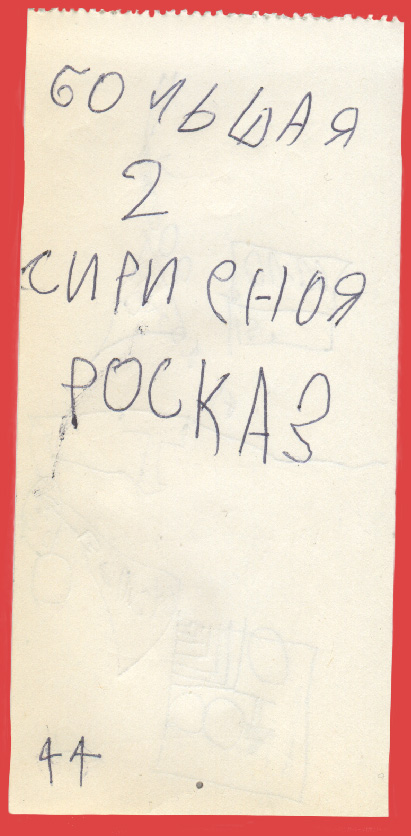 БОЛЬШАЯ
2
СИРИЕНОЯ
РОСКАЗ
44